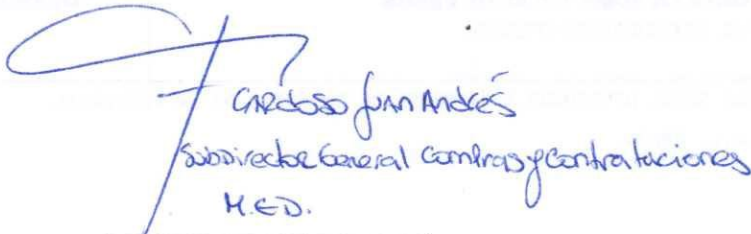 Cardoso Juan Andrés
Subdirector General Compras y Contrataciones
M.E.D.